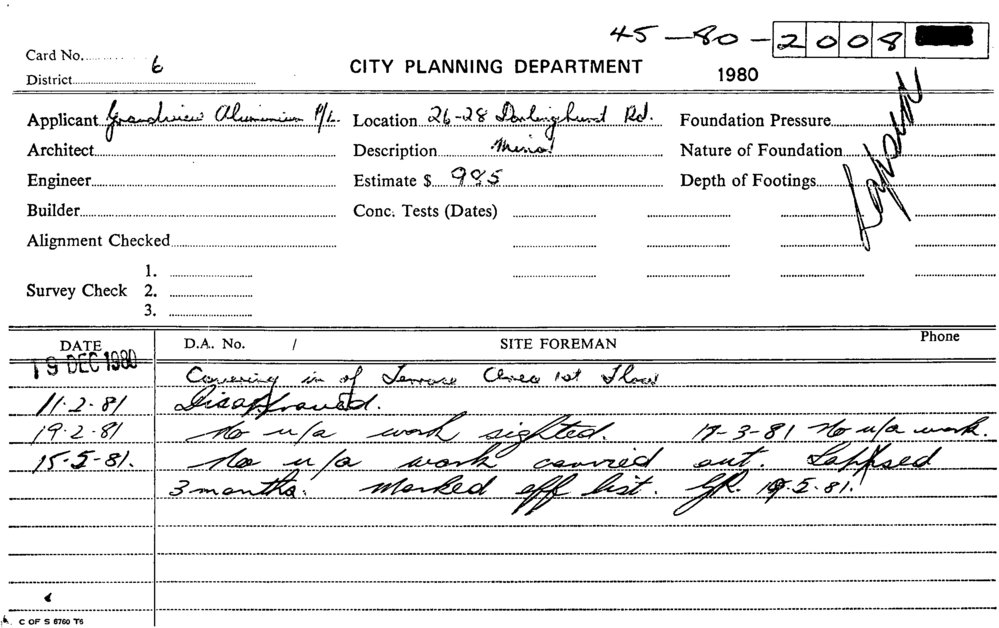 45-80-2008
Card No.
District 6
CITY PLANNING DEPARTMENT
1980
Applicant Grandview Aluminium P/L. Location 26-28 Darlinghurst Rd. Foundation Pressure
Architect Description Minor Nature of Foundation
Engineer Estimate $ 985 Depth of Footings
Lapsed
Builder Conc. Tests (Dates)
Alignment Checked
1.
Survey Check 2.
3.
DATE D.A. No. / SITE FOREMAN Phone
19 DEC 1980
Covering in of Terrace Area 1st Floor
11.2.81 Disapproved.
19.2.81 No u/a work sighted. 17-3-81 No u/a work.
15.5.81. No u/a work carried out. Lapsed
3 months. Marked off list. GR. 15.5.81.
C OF S 6760 T6